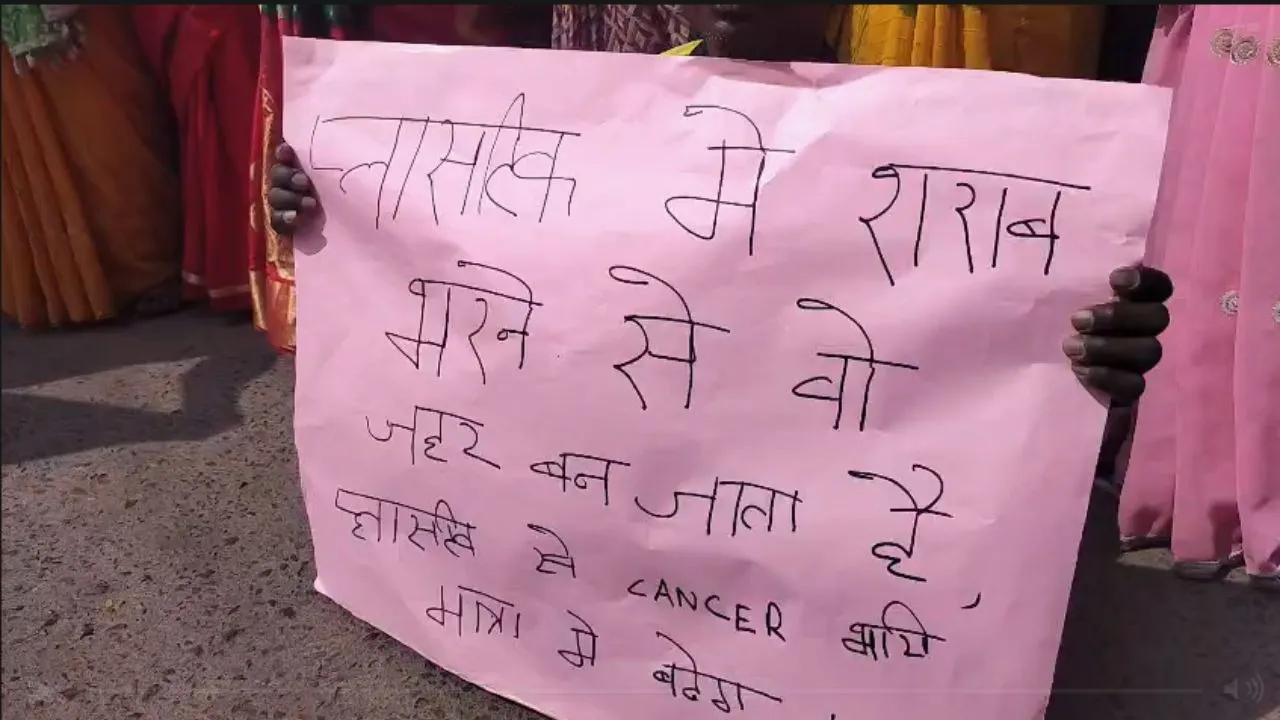 प्लासटिक मे शराब
भरने से वो
जहर बन जाता है,
प्लासटिक से CANCER भारी
मात्रा मे बढेगा